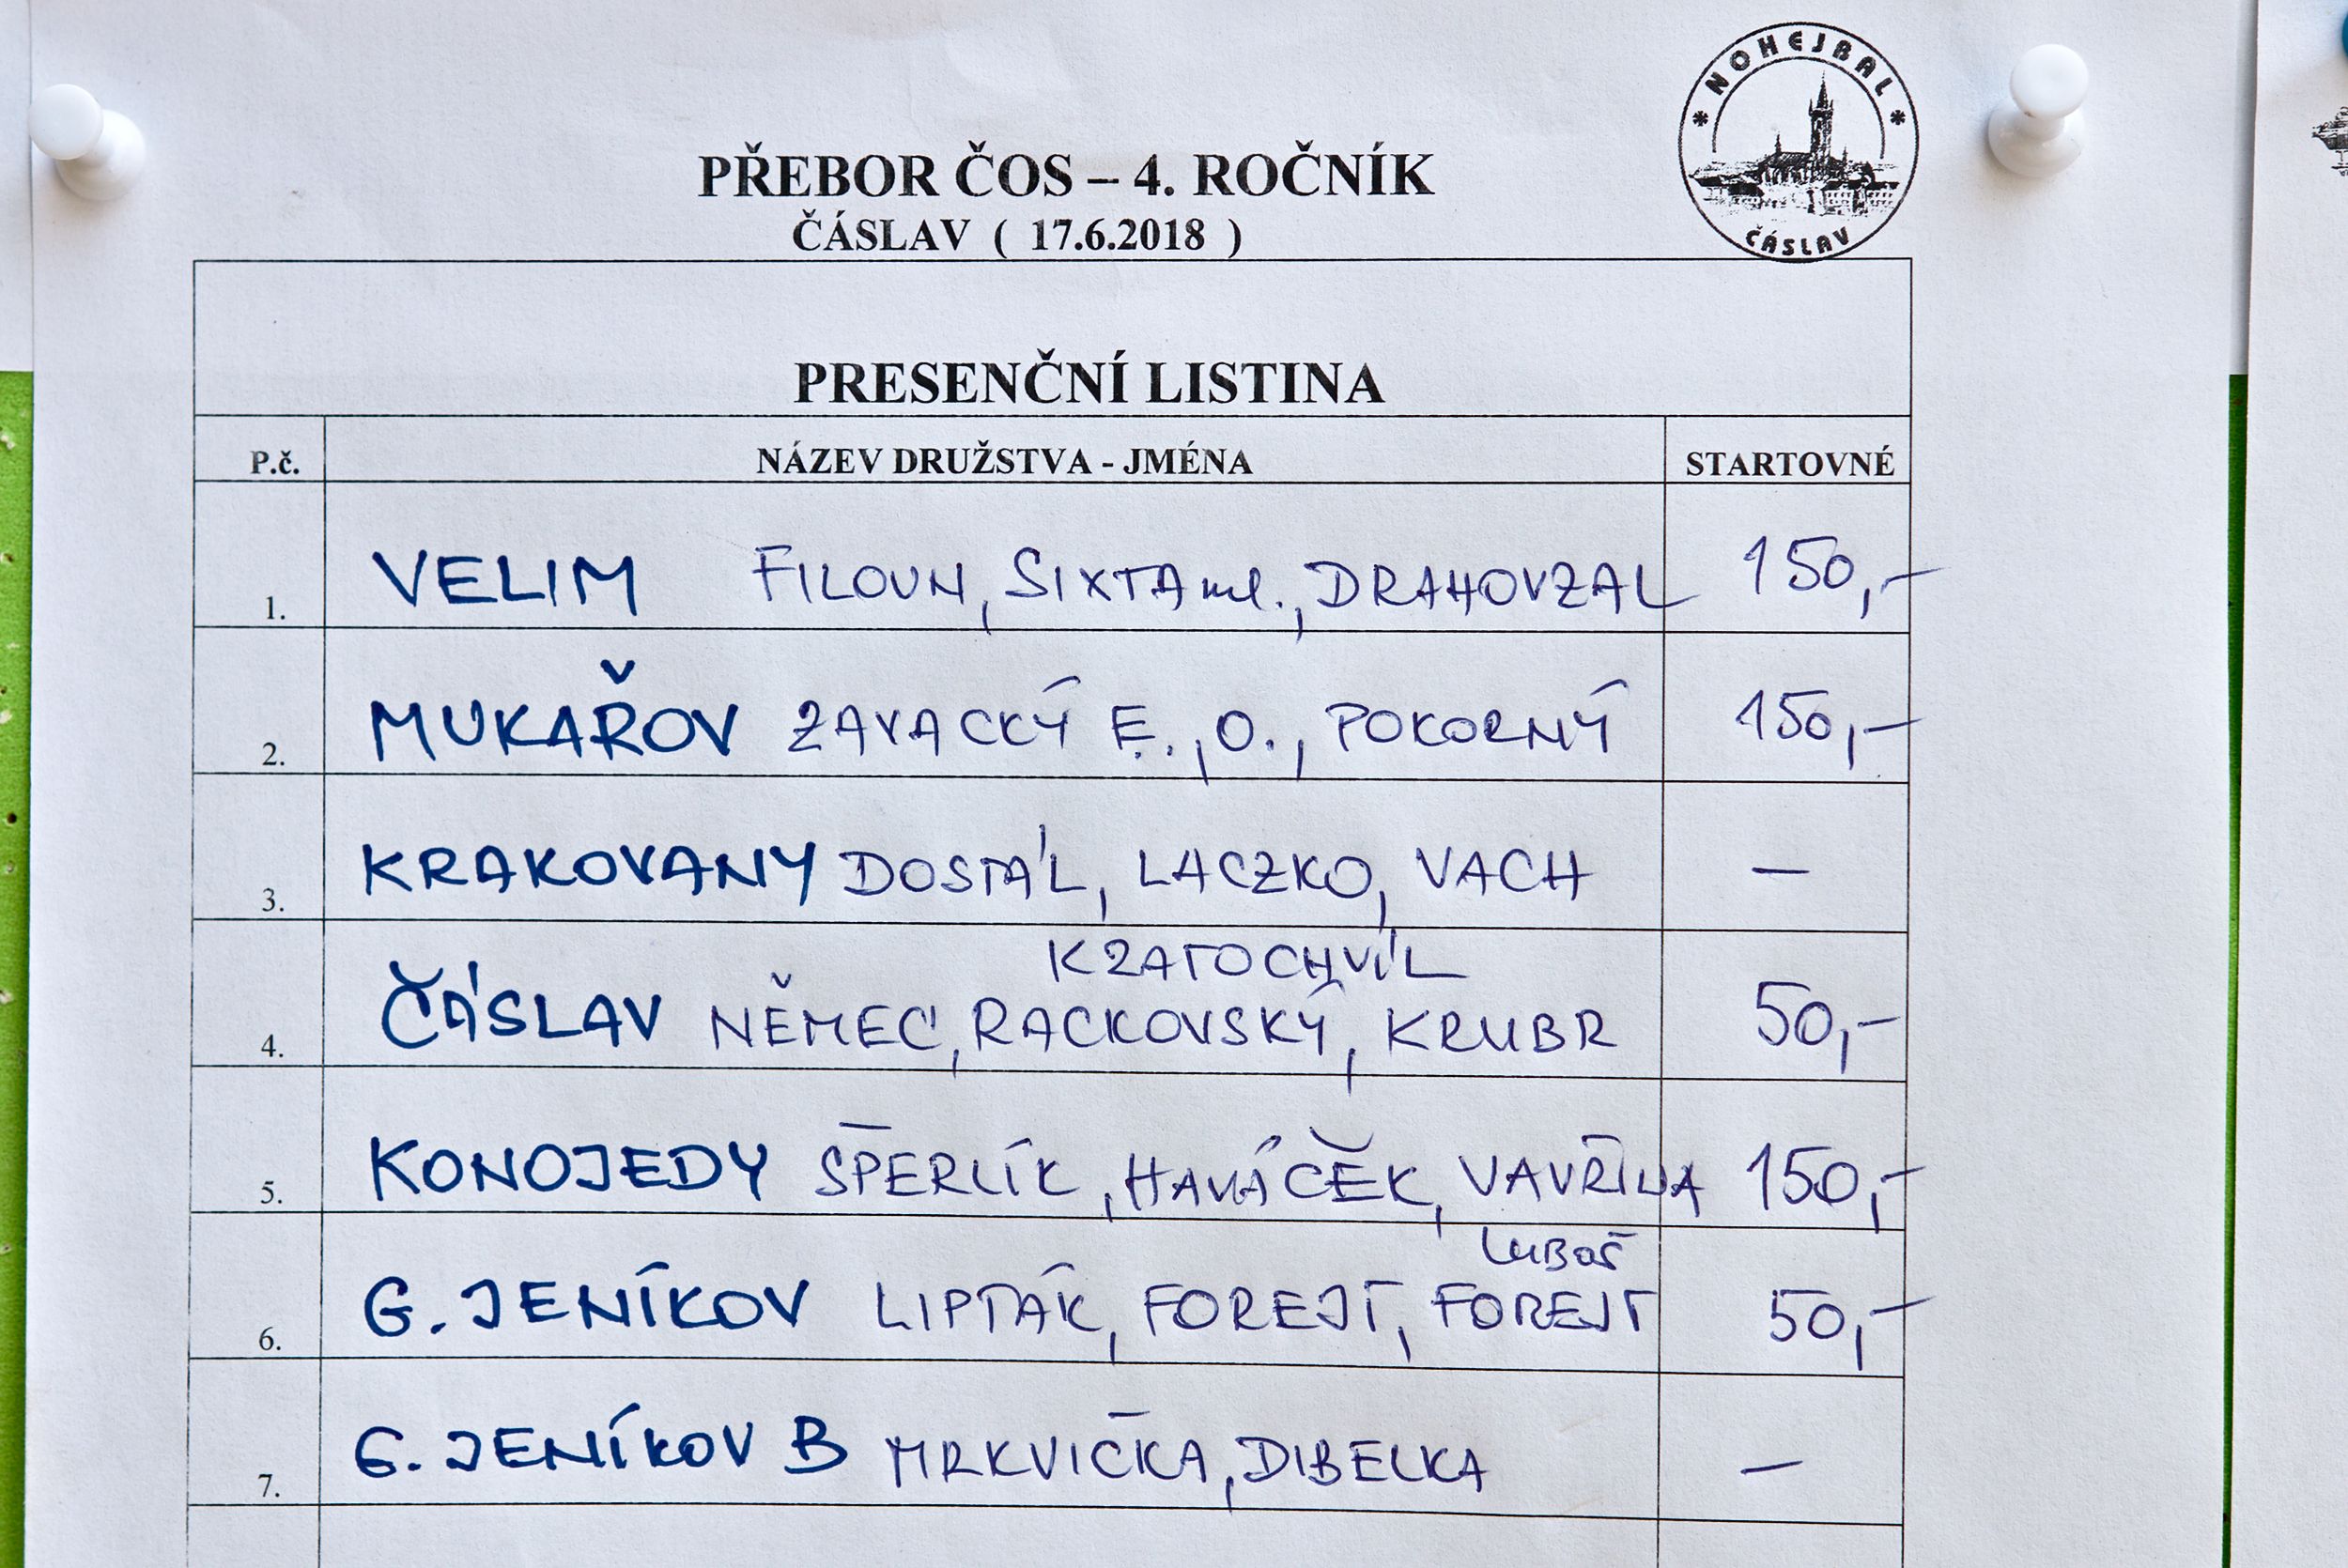 NOHEJBAL
ČÁSLAV
PŘEBOR ČOS – 4. ROČNÍK
ČÁSLAV ( 17.6.2018 )
PRESENČNÍ LISTINA
P.č. NÁZEV DRUŽSTVA - JMÉNA STARTOVNÉ
1. VELIM FILOUN, SIXTA ml., DRAHOVZAL 150,-
2. MUKAŘOV ZAVACKÝ E., O., POKORNÝ 150,-
3. KRAKOVANY DOSTÁL, LACZKO, VACH —
KRATOCHVÍL
4. ČÁSLAV NĚMEC, RACKOVSKÝ, KRUBR 50,-
5. KONOJEDY ŠPERLÍK, HAVÁČEK, VAVŘINA 150,-
LUBOŠ
6. G. JENÍKOV LIPTÁK, FOREJT, FOREJT 50,-
7. G. JENÍKOV B MRKVIČKA, DIBELKA —